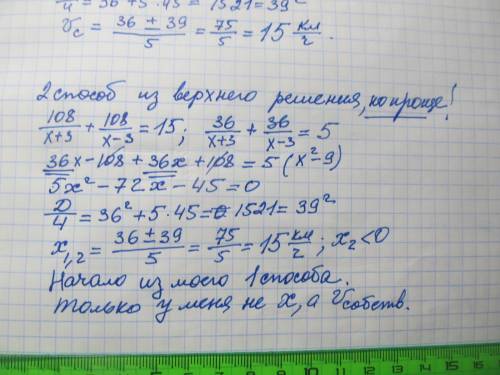 D/4 = 36 + 5·45 = 1521 = 39²
Vc = (36 ± 39)/5 = 75/5 = 15 км/ч.
2 способ из верхнего решения, но проще!
108/(x+3) + 108/(x-3) = 15; 36/(x+3) + 36/(x-3) = 5
36x - 108 + 36x + 108 = 5(x²-9)
5x² - 72x - 45 = 0
D/4 = 36² + 5·45 = 1521 = 39²
x1,2 = (36 ± 39)/5 = 75/5 = 15 км/ч; x2 < 0
Начало из моего 1 способа.
Только у меня не x, а Vсобств.
1 2 3 4 5 6 7 8 9 10 11 12 13 14 15 16